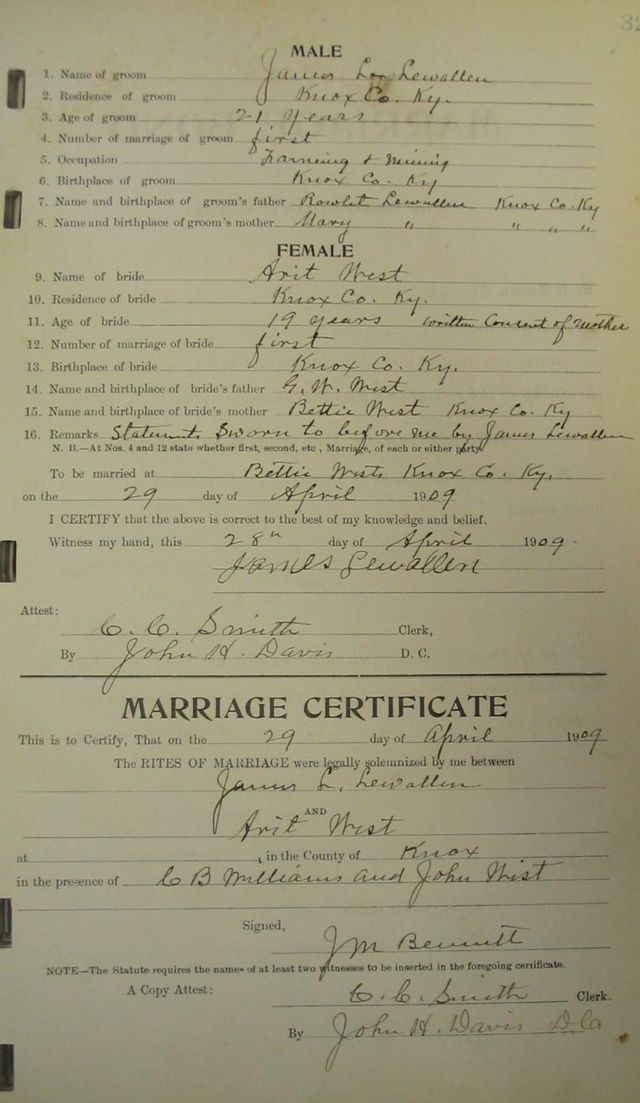 32
MALE
1. Name of groom James L. Lewallen
2. Residence of groom Knox Co. Ky.
3. Age of groom 21 years
4. Number of marriage of groom first
5. Occupation Farming & Mining
6. Birthplace of groom Knox Co. Ky
7. Name and birthplace of groom's father Rowlet Lewallen Knox Co. Ky
8. Name and birthplace of groom's mother Mary " " " "
FEMALE
9. Name of bride Arit West
10. Residence of bride Knox Co. Ky.
11. Age of bride 19 years written Consent of Mother
12. Number of marriage of bride first
13. Birthplace of bride Knox Co. Ky.
14. Name and birthplace of bride's father G. W. West
15. Name and birthplace of bride's mother Bettie West Knox Co. Ky
16. Remarks Statements Sworn to before me by James Lewallen
N. B.—At Nos. 4 and 12 state whether first, second, etc., Marriage, of each or either party.
To be married at Bettie Wests Knox Co. Ky.
on the 29 day of April 1909
I CERTIFY that the above is correct to the best of my knowledge and belief.
Witness my hand, this 28th day of April 1909.
James Lewallen
Attest:
C. C. Smith Clerk,
By John H. Davis D. C.
MARRIAGE CERTIFICATE
This is to Certify, That on the 29 day of April 1909
The RITES OF MARRIAGE were legally solemnized by me between
James L. Lewallen
AND
Arit West
at , in the County of Knox
in the presence of C B Williams and John West
Signed,
J M Bennett
NOTE—The Statute requires the names of at least two witnesses to be inserted in the foregoing certificate.
A Copy Attest: C. C. Smith Clerk.
By John H. Davis D.C.